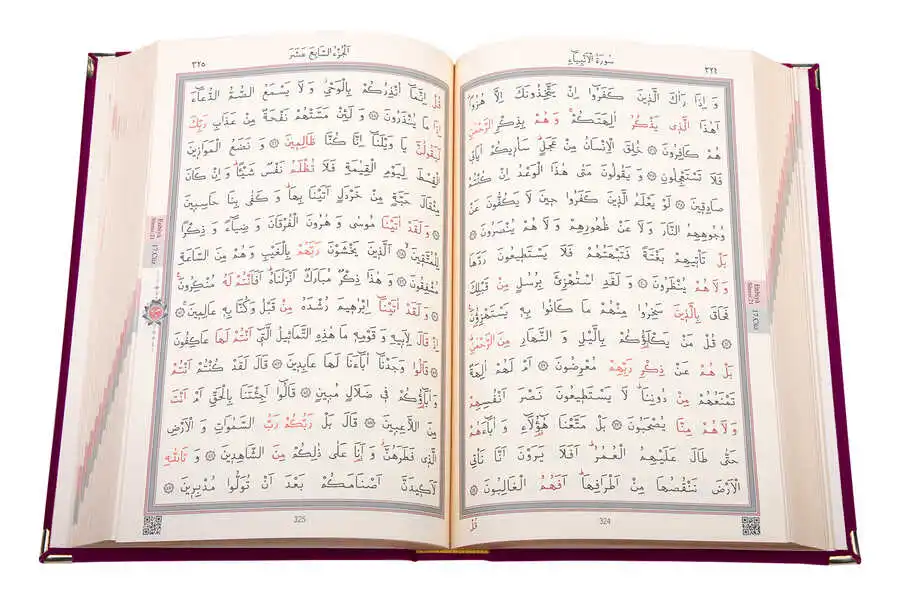 سُورَةُ الْاَنْبِيَاءِ
٣٢٤
وَ اِذَا رَاٰكَ الَّذِينَ كَفَرُٓوا اِنْ يَتَّخِذُونَكَ اِلَّا هُزُوًا
اَهٰذَا الَّذِى يَذْكُرُ اٰلِهَتَكُمْ وَ هُمْ بِذِكْرِ الرَّحْمٰنِ
هُمْ كَافِرُونَ ۝ خُلِقَ الْاِنْسَانُ مِنْ عَجَلٍ سَاُرِيكُمْ اٰيَاتِى
فَلَا تَسْتَعْجِلُونِ ۝ وَ يَقُولُونَ مَتٰى هٰذَا الْوَعْدُ اِنْ كُنْتُمْ
صَادِقِينَ ۝ لَوْ يَعْلَمُ الَّذِينَ كَفَرُوا حِينَ لَا يَكُفُّونَ عَنْ
وُجُوهِهِمُ النَّارَ وَ لَا عَنْ ظُهُورِهِمْ وَ لَا هُمْ يُنْصَرُونَ ۝
بَلْ تَاْتِيهِمْ بَغْتَةً فَتَبْهَتُهُمْ فَلَا يَسْتَطِيعُونَ رَدَّهَا
وَ لَا هُمْ يُنْظَرُونَ ۝ وَ لَقَدِ اسْتُهْزِئَ بِرُسُلٍ مِنْ قَبْلِكَ
فَحَاقَ بِالَّذِينَ سَخِرُوا مِنْهُمْ مَا كَانُوا بِهِ يَسْتَهْزِؤُنَ
۝ قُلْ مَنْ يَكْلَؤُكُمْ بِالَّيْلِ وَ النَّهَارِ مِنَ الرَّحْمٰنِ
بَلْ هُمْ عَنْ ذِكْرِ رَبِّهِمْ مُعْرِضُونَ ۝ اَمْ لَهُمْ اٰلِهَةٌ
تَمْنَعُهُمْ مِنْ دُونِنَا لَا يَسْتَطِيعُونَ نَصْرَ اَنْفُسِهِمْ
وَ لَا هُمْ مِنَّا يُصْحَبُونَ ۝ بَلْ مَتَّعْنَا هٰٓؤُلَٓاءِ وَ اٰبَٓاءَهُمْ
حَتّٰى طَالَ عَلَيْهِمُ الْعُمُرُ اَفَلَا يَرَوْنَ اَنَّا نَاْتِى
الْاَرْضَ نَنْقُصُهَا مِنْ اَطْرَافِهَا اَفَهُمُ الْغَالِبُونَ ۝
قُلْ
324
Enbiyâ
Sûresi/21
17.Cüz
اَلْجُزْءُ السَّابِعَ عَشَرَ
٣٢٥
قُلْ اِنَّمَٓا اُنْذِرُكُمْ بِالْوَحْىِ وَ لَا يَسْمَعُ الصُّمُّ الدُّعَٓاءَ
اِذَا مَا يُنْذَرُونَ ۝ وَ لَئِنْ مَسَّتْهُمْ نَفْحَةٌ مِنْ عَذَابِ رَبِّكَ
لَيَقُولُنَّ يَا وَيْلَنَٓا اِنَّا كُنَّا ظَالِمِينَ ۝ وَ نَضَعُ الْمَوَازِينَ
الْقِسْطَ لِيَوْمِ الْقِيٰمَةِ فَلَا تُظْلَمُ نَفْسٌ شَيْئًا وَ اِنْ كَانَ
مِثْقَالَ حَبَّةٍ مِنْ خَرْدَلٍ اَتَيْنَا بِهَا وَ كَفٰى بِنَا حَاسِبِينَ
۝ وَ لَقَدْ اٰتَيْنَا مُوسٰى وَ هٰرُونَ الْفُرْقَانَ وَ ضِيَٓاءً وَ ذِكْرًا
لِلْمُتَّقِينَ ۝ اَلَّذِينَ يَخْشَوْنَ رَبَّهُمْ بِالْغَيْبِ وَ هُمْ مِنَ السَّاعَةِ
مُشْفِقُونَ ۝ وَ هٰذَا ذِكْرٌ مُبَارَكٌ اَنْزَلْنَاهُ اَفَاَنْتُمْ لَهُ مُنْكِرُونَ
۝ وَ لَقَدْ اٰتَيْنَٓا اِبْرٰهِيمَ رُشْدَهُ مِنْ قَبْلُ وَ كُنَّا بِهِ عَالِمِينَ ۝
اِذْ قَالَ لِاَبِيهِ وَ قَوْمِهِ مَا هٰذِهِ التَّمَاثِيلُ الَّتِى اَنْتُمْ لَهَا عَاكِفُونَ
۝ قَالُوا وَجَدْنَٓا اٰبَٓاءَنَا لَهَا عَابِدِينَ ۝ قَالَ لَقَدْ كُنْتُمْ اَنْتُمْ
وَ اٰبَٓاؤُكُمْ فِى ضَلَالٍ مُبِينٍ ۝ قَالُٓوا اَجِئْتَنَا بِالْحَقِّ اَمْ اَنْتَ
مِنَ اللَّاعِبِينَ ۝ قَالَ بَلْ رَبُّكُمْ رَبُّ السَّمٰوَاتِ وَ الْاَرْضِ
الَّذِى فَطَرَهُنَّ وَ اَنَا عَلٰى ذٰلِكُمْ مِنَ الشَّاهِدِينَ ۝ وَ تَاللّٰهِ
لَاَكِيدَنَّ اَصْنَامَكُمْ بَعْدَ اَنْ تُوَلُّوا مُدْبِرِينَ ۝
325
Enbiyâ
Sûresi/21
17.Cüz